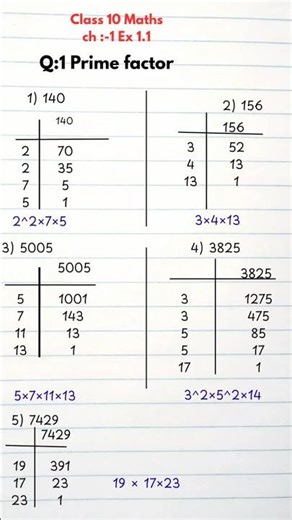 Class 10 Maths
ch :-1 Ex 1.1
Q:1 Prime factor
1) 140
140
2 70
2 35
7 5
5 1
2^2×7×5
2) 156
156
3 52
4 13
13 1
3×4×13
3) 5005
5005
5 1001
7 143
11 13
13 1
5×7×11×13
4) 3825
3825
3 1275
3 475
5 85
5 17
17 1
3^2×5^2×14
5) 7429
7429
19 391
17 23
23 1
19 × 17×23